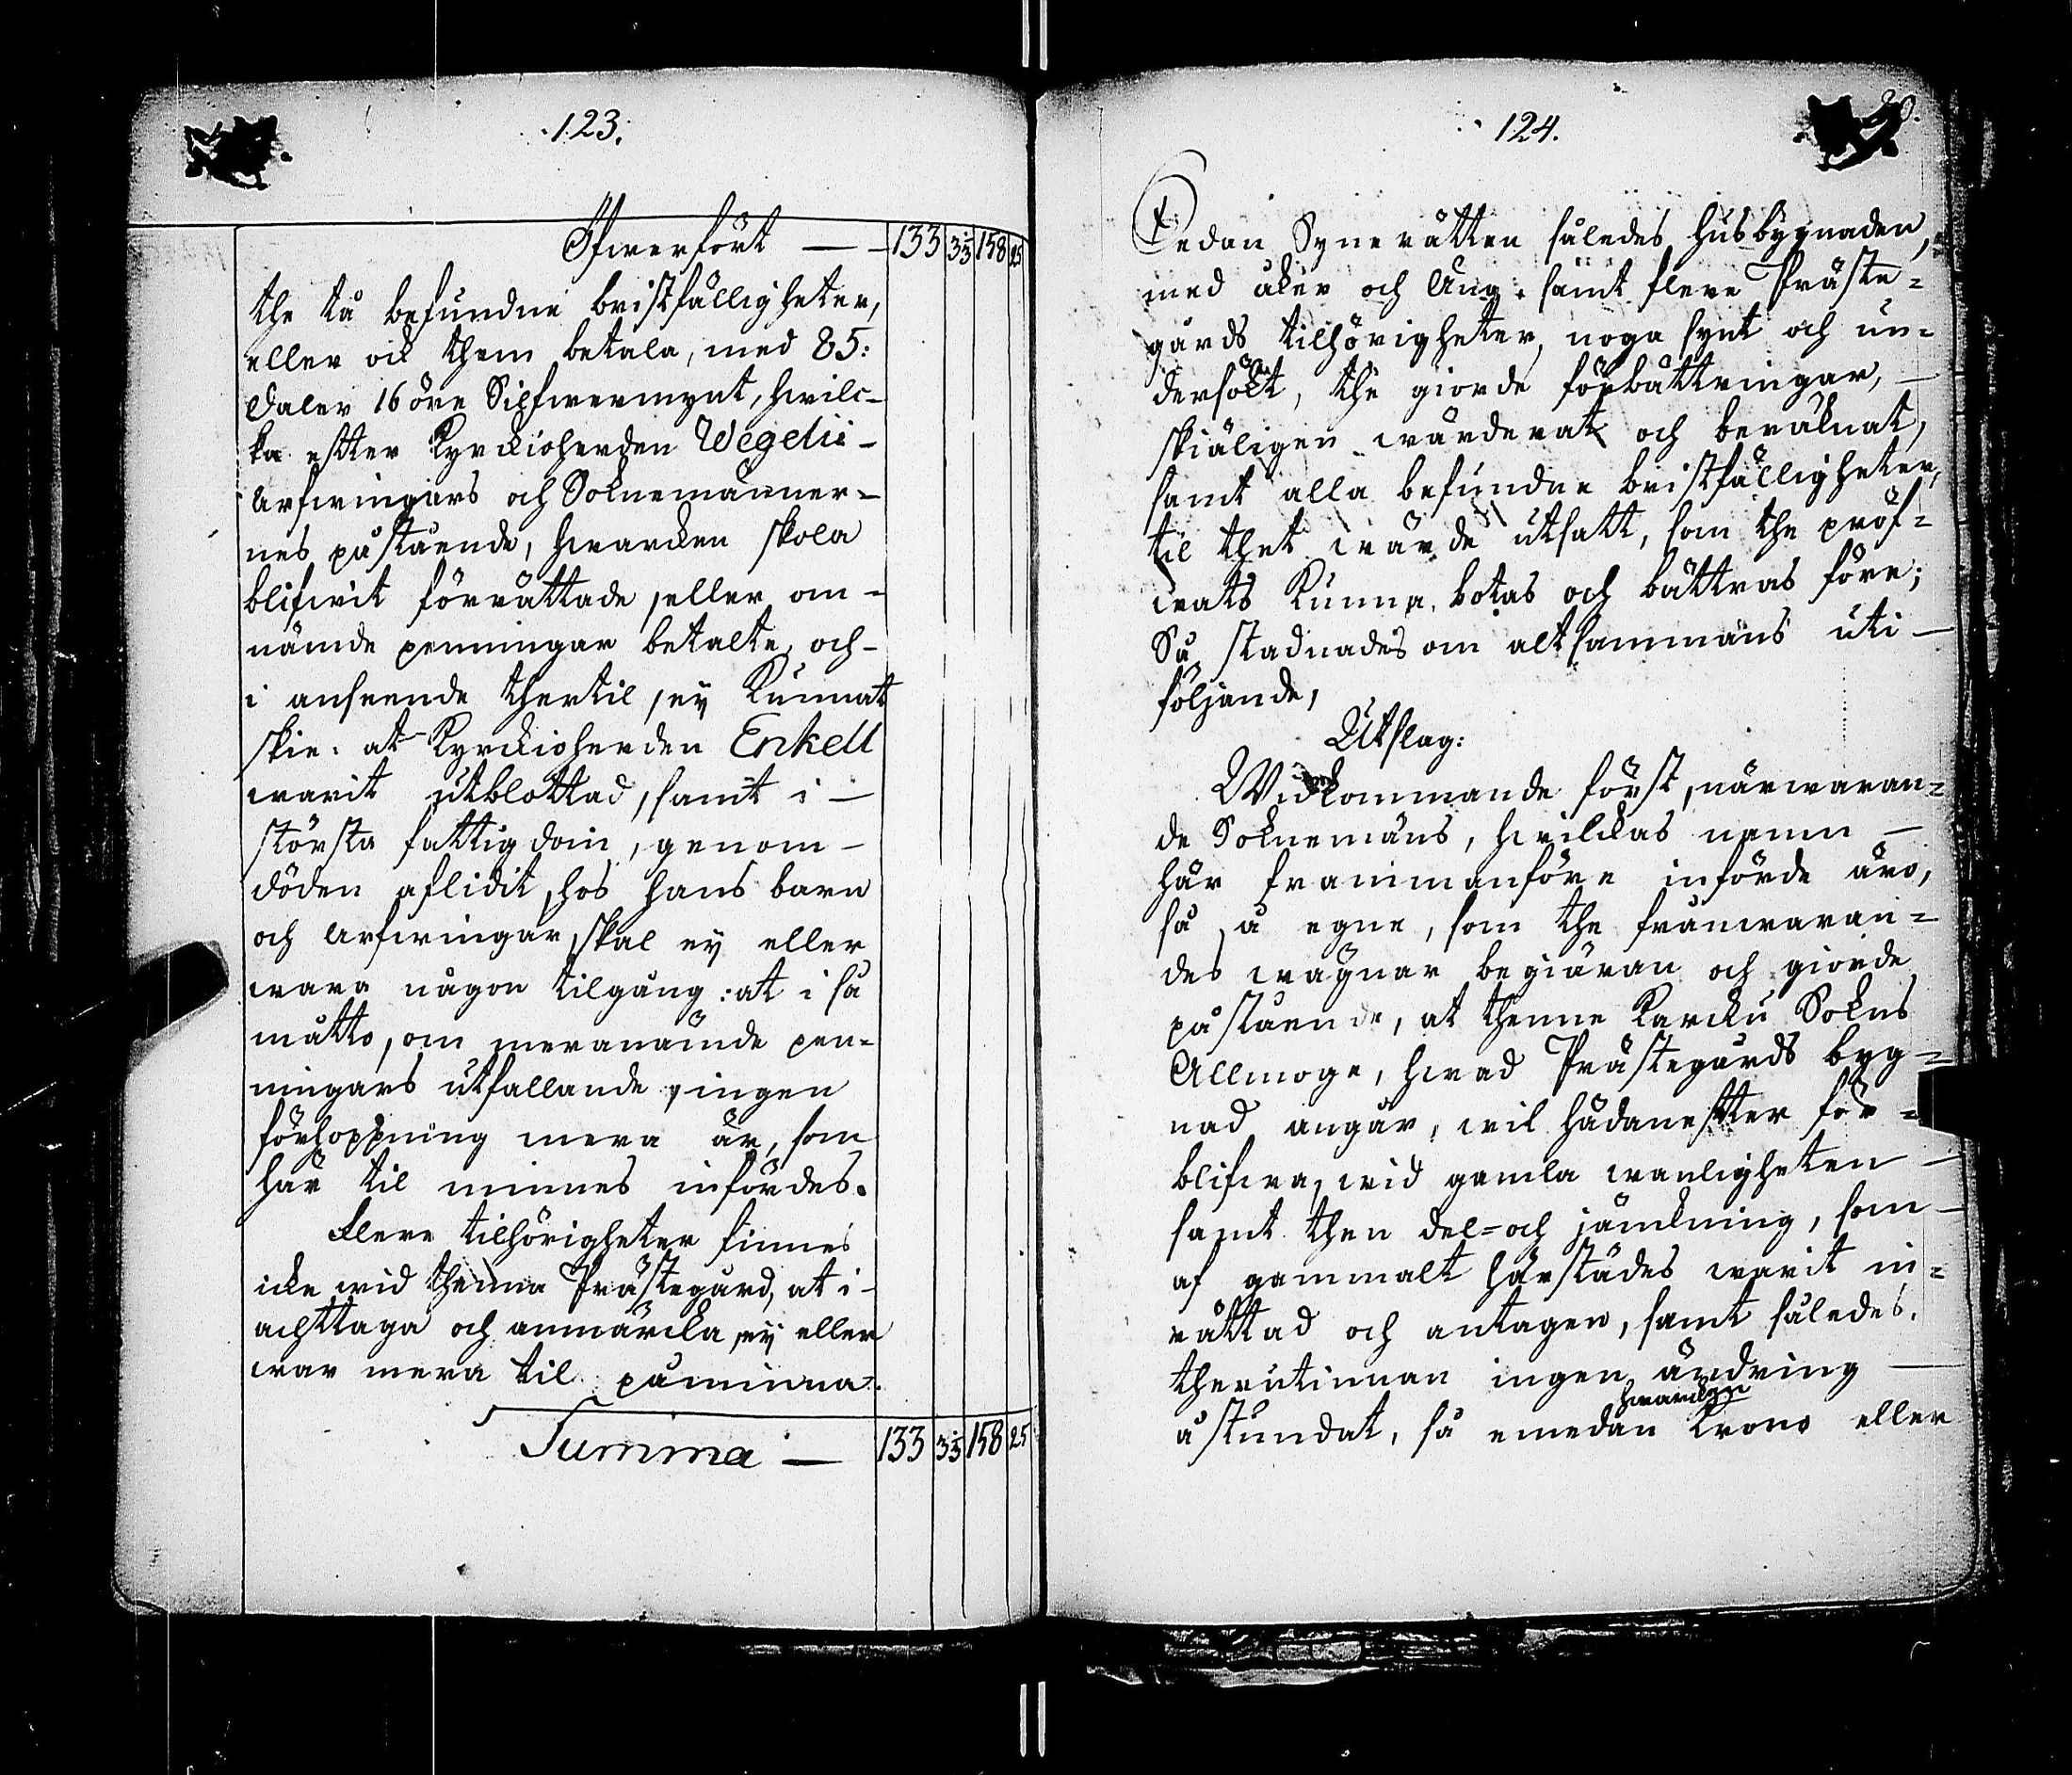 123.
Öfwerfört — 133 33 158 25
the tå befundne bristfälligheter,
eller ock them betala, med 85:
Daler 16 öre Silfwermynt, hwilc-
ka efter Kyrckioherden Wegelii-
Arfwingars och Soknemänner-
nes påstående, hwarcken skola
blifwit förrättade, eller om-
nämde penningar betalte, och-
i anseende thertil, ey kunnat
skie: at Kyrckioherden Enkell
warit utblottad, samt i —
största fattigdom, genom —
döden aflidit, hos hans barn
och Arfwingar, skal ey eller
wara någon tilgång: at i så
måtto, om meranämde pen-
ningars utfallande, ingen
förhoppning mera är, som
här til minnes infördes.
Flere tilhörigheter finnes
icke wid thenna Prästegård, at i-
achttaga och anmärcka, ey eller
war mera til påminna.
Summa — 133 33 158 25
124.
Sedan Synerätten således husbygnaden,
med åker och Äng, samt flere Präste=
gårds tilhörigheter, noga synt och un=
dersökt, the giorde förbättringar, —
skiäligen wärderat och beräknat,
samt alla befundne bristfälligheter,
til thet wärde utsatt, som the pröf=
wats kunna botas och bättras före;
Så stadnades om altsammans uti —
följande,
Utslag:
Widkommande först, närwaran=
de Soknemäns, hwilckas namn —
här frammanföre införde äro,
så å egne, som the frånwaran=
des wägnar begiäran och giorde
påstående, at thenne Karcku Sokns
Allmoge, hwad Prästegårds byg=
nad angår, wil hädanefter för=
blifwa, wid gamla wanligheten —
samt then del= och jämkning, som —
af gammalt härstädes warit in=
rättad och antagen, samt således,
therutinnan ingen ändring —
hwarcken
åstundat, så emedan Krono eller